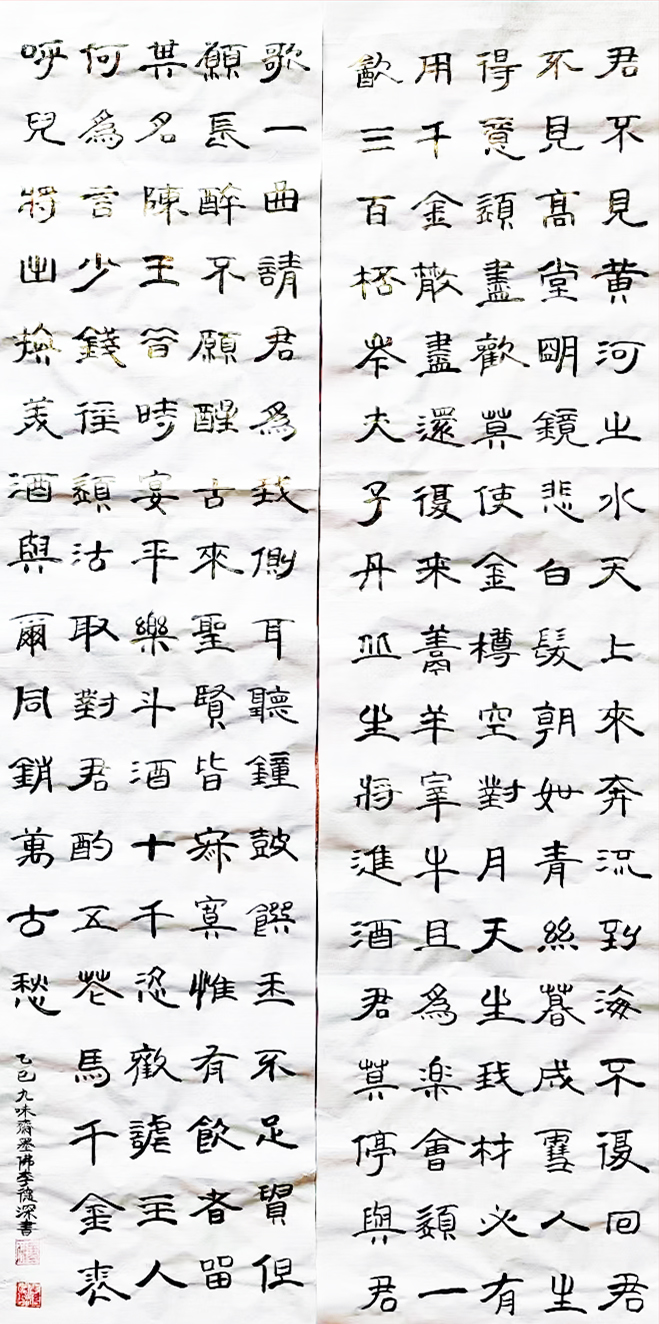 君不見黄河之水天上來奔流到海不復回君
不見高堂明鏡悲白髮朝如青絲暮成雪人生
得意須盡歡莫使金樽空對月天生我材必有
用千金散盡還復来烹羊宰牛且為楽會須一
飲三百桮岑夫子丹丘生將進酒君莫停與君
歌一曲請君為我側耳聽鐘鼓饌玉不足貴但
願長醉不願醒古來聖賢皆寂寞惟有飲者留
其名陳王昔時宴平樂斗酒十千恣歡謔主人
何為言少錢徑須沽取對君酌五花馬千金裘
呼兒將出換美酒與爾同銷萬古愁
乙巳九味齋墨佛李深書